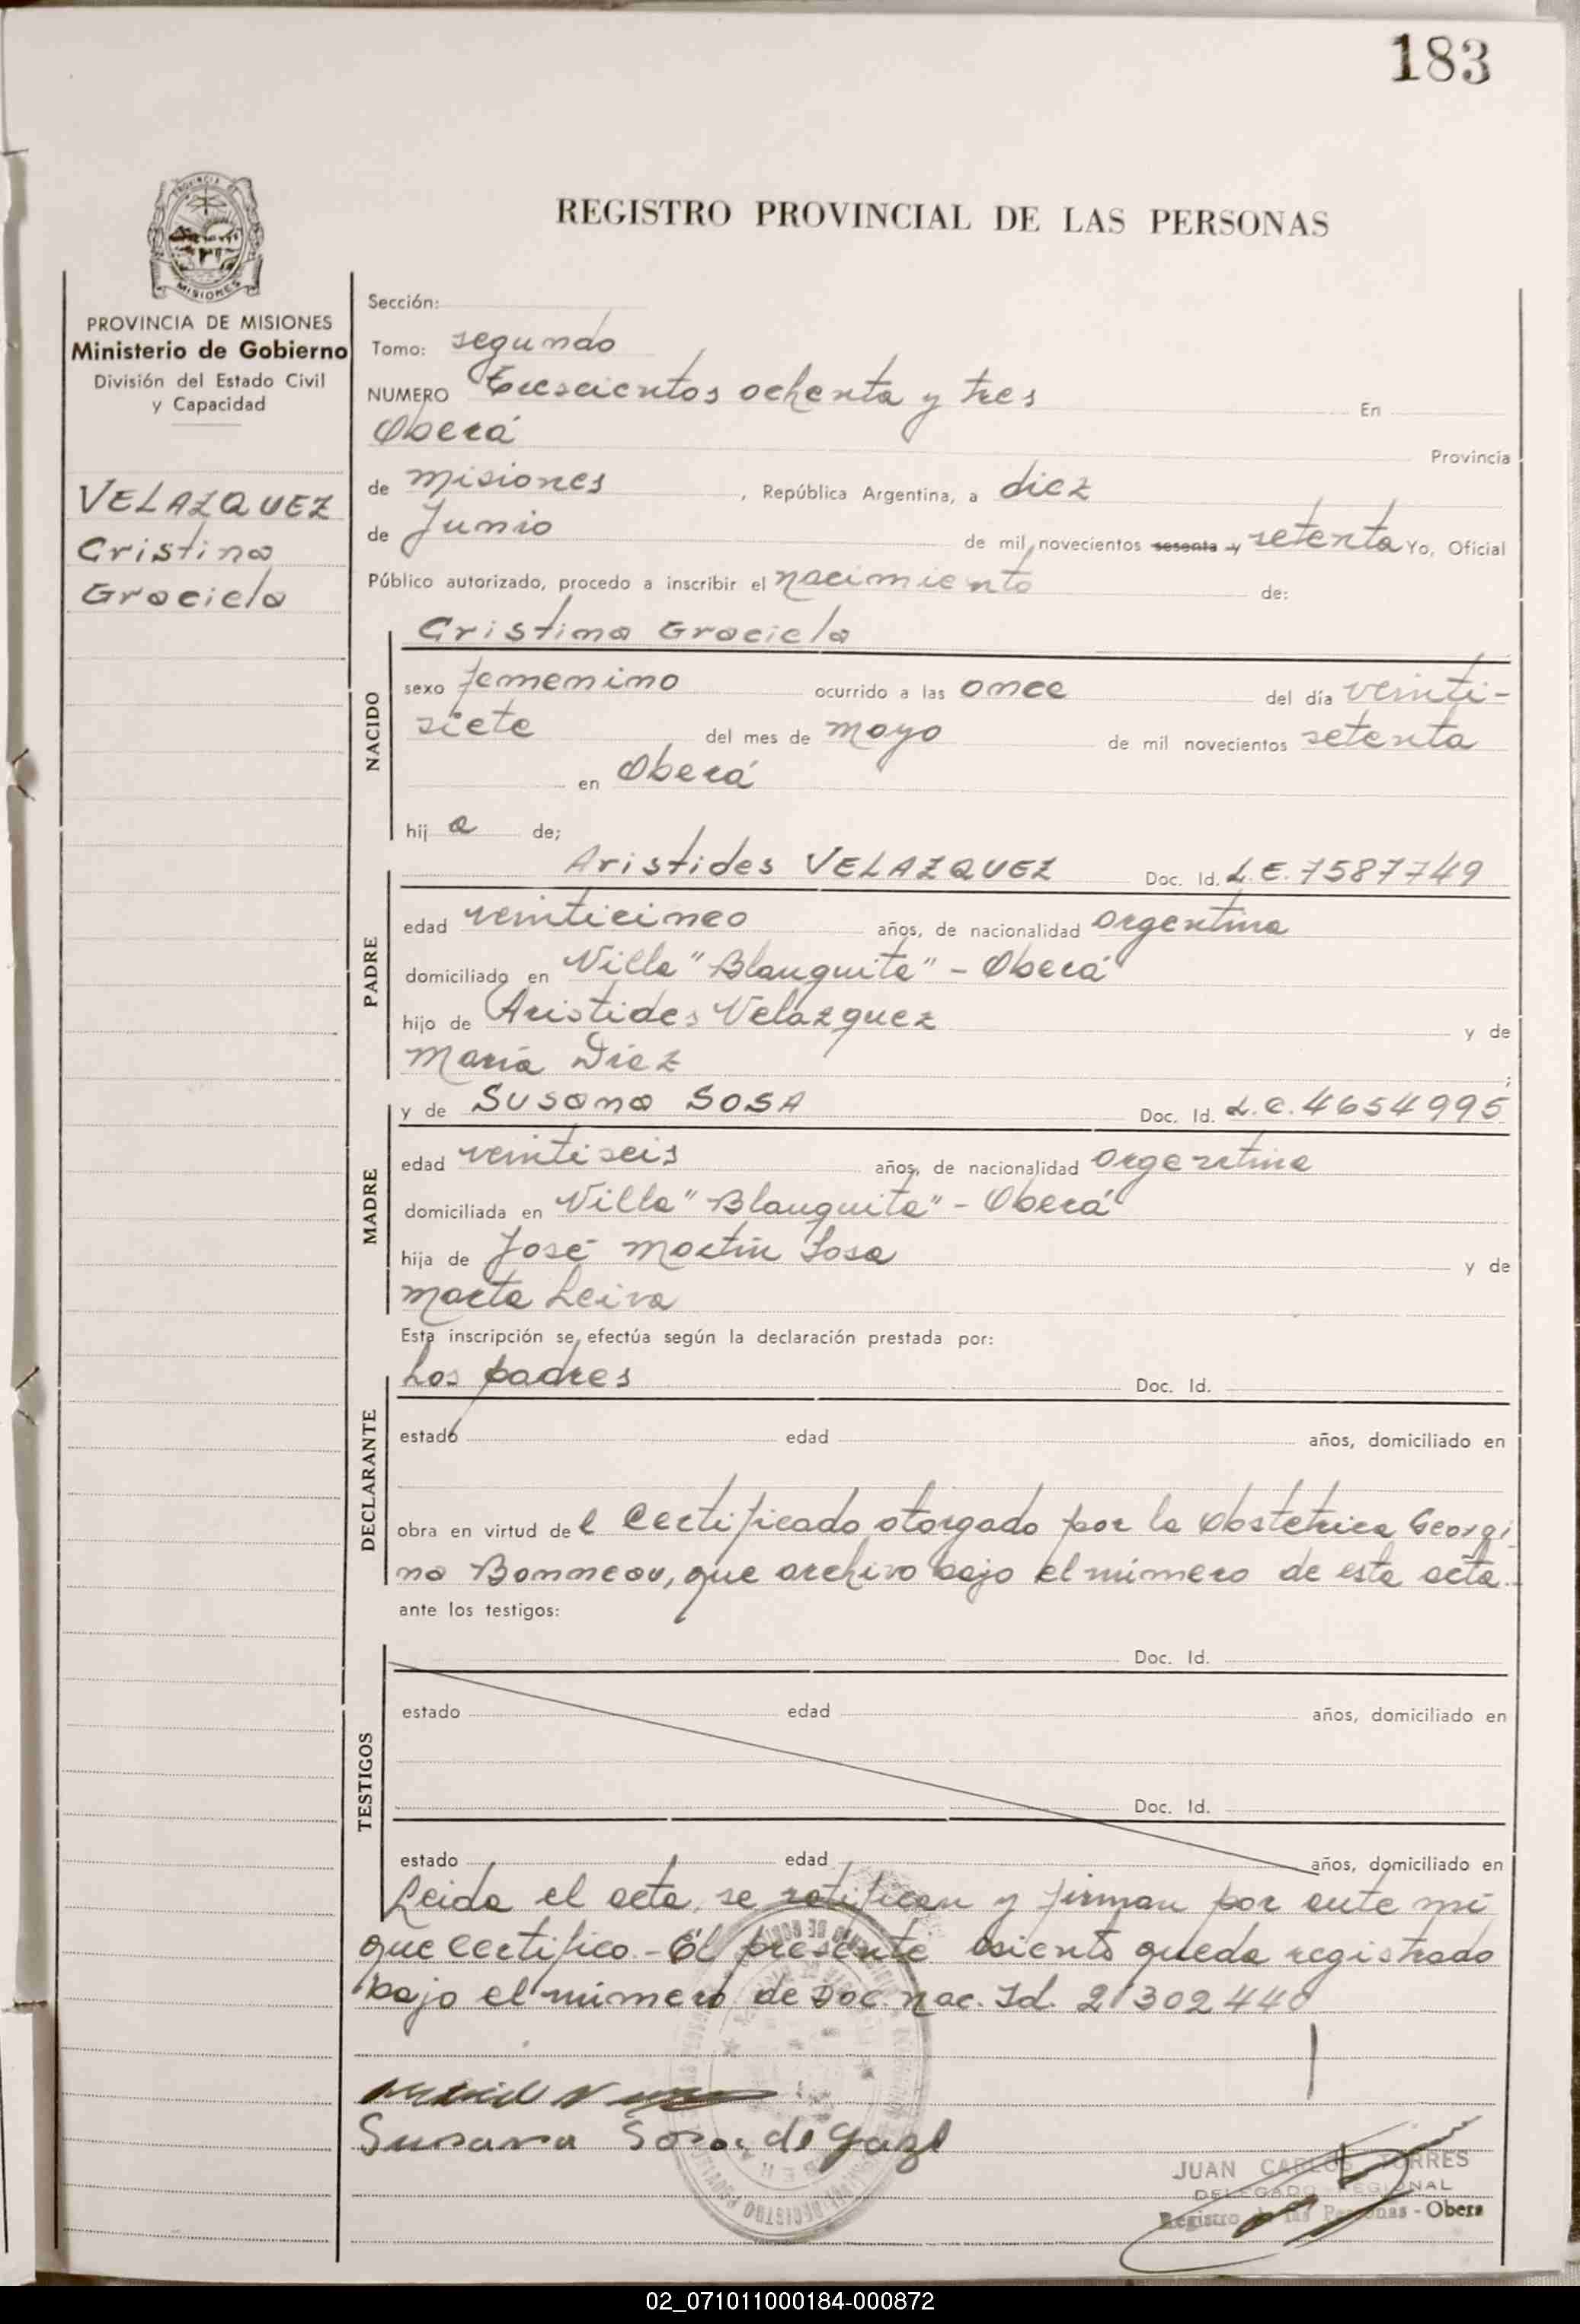 183
PROVINCIA DE
MISIONES
REGISTRO PROVINCIAL DE LAS PERSONAS
PROVINCIA DE MISIONES
Ministerio de Gobierno
División del Estado Civil
y Capacidad
VELAZQUEZ
Cristina
Graciela
Sección:
Tomo: segundo
NUMERO Trescientos ochenta y tres En
Oberá Provincia
de Misiones , República Argentina, a diez
de Junio de mil novecientos sesenta y setenta Yo, Oficial
Público autorizado, procedo a inscribir el nacimiento de:
Cristina Graciela
NACIDO
sexo femenino ocurrido a las once del día veinti-
siete del mes de mayo de mil novecientos setenta
en Oberá
hij a de;
PADRE
Aristides VELAZQUEZ Doc. Id. L.E. 7587749
edad veinticinco años, de nacionalidad argentina
domiciliado en Villa "Blanquita" - Oberá
hijo de Aristides Velazquez y de
María Diez ;
MADRE
y de Susana SOSA Doc. Id. L.C. 4654995
edad veintiseis años, de nacionalidad argentina
domiciliada en Villa "Blanquita" - Oberá
hija de José Martín Sosa y de
Marta Leiva
Esta inscripción se efectúa según la declaración prestada por:
DECLARANTE
Los padres Doc. Id.
estado edad años, domiciliado en
obra en virtud de l Certificado otorgado por la Obstetrica Georgi
na Bonneau, que archivo bajo el número de esta acta.
ante los testigos:
TESTIGOS
Doc. Id.
estado edad años, domiciliado en
Doc. Id.
estado edad años, domiciliado en
Leida el acta, se ratifican y firman por ante mí
que certifico. - El presente asiento queda registrado
bajo el número de Doc. nac. Id. 21302440
Susana Sosa de
JUAN CARLOS TORRES
DELEGADO REGIONAL
Registro de las Personas - Obera
02_071011000184-000872